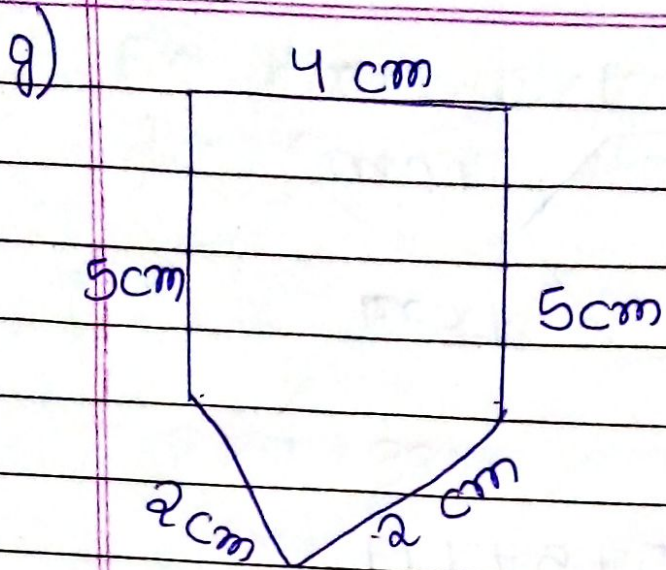 g)
4 cm
5cm
5cm
2cm
2 cm